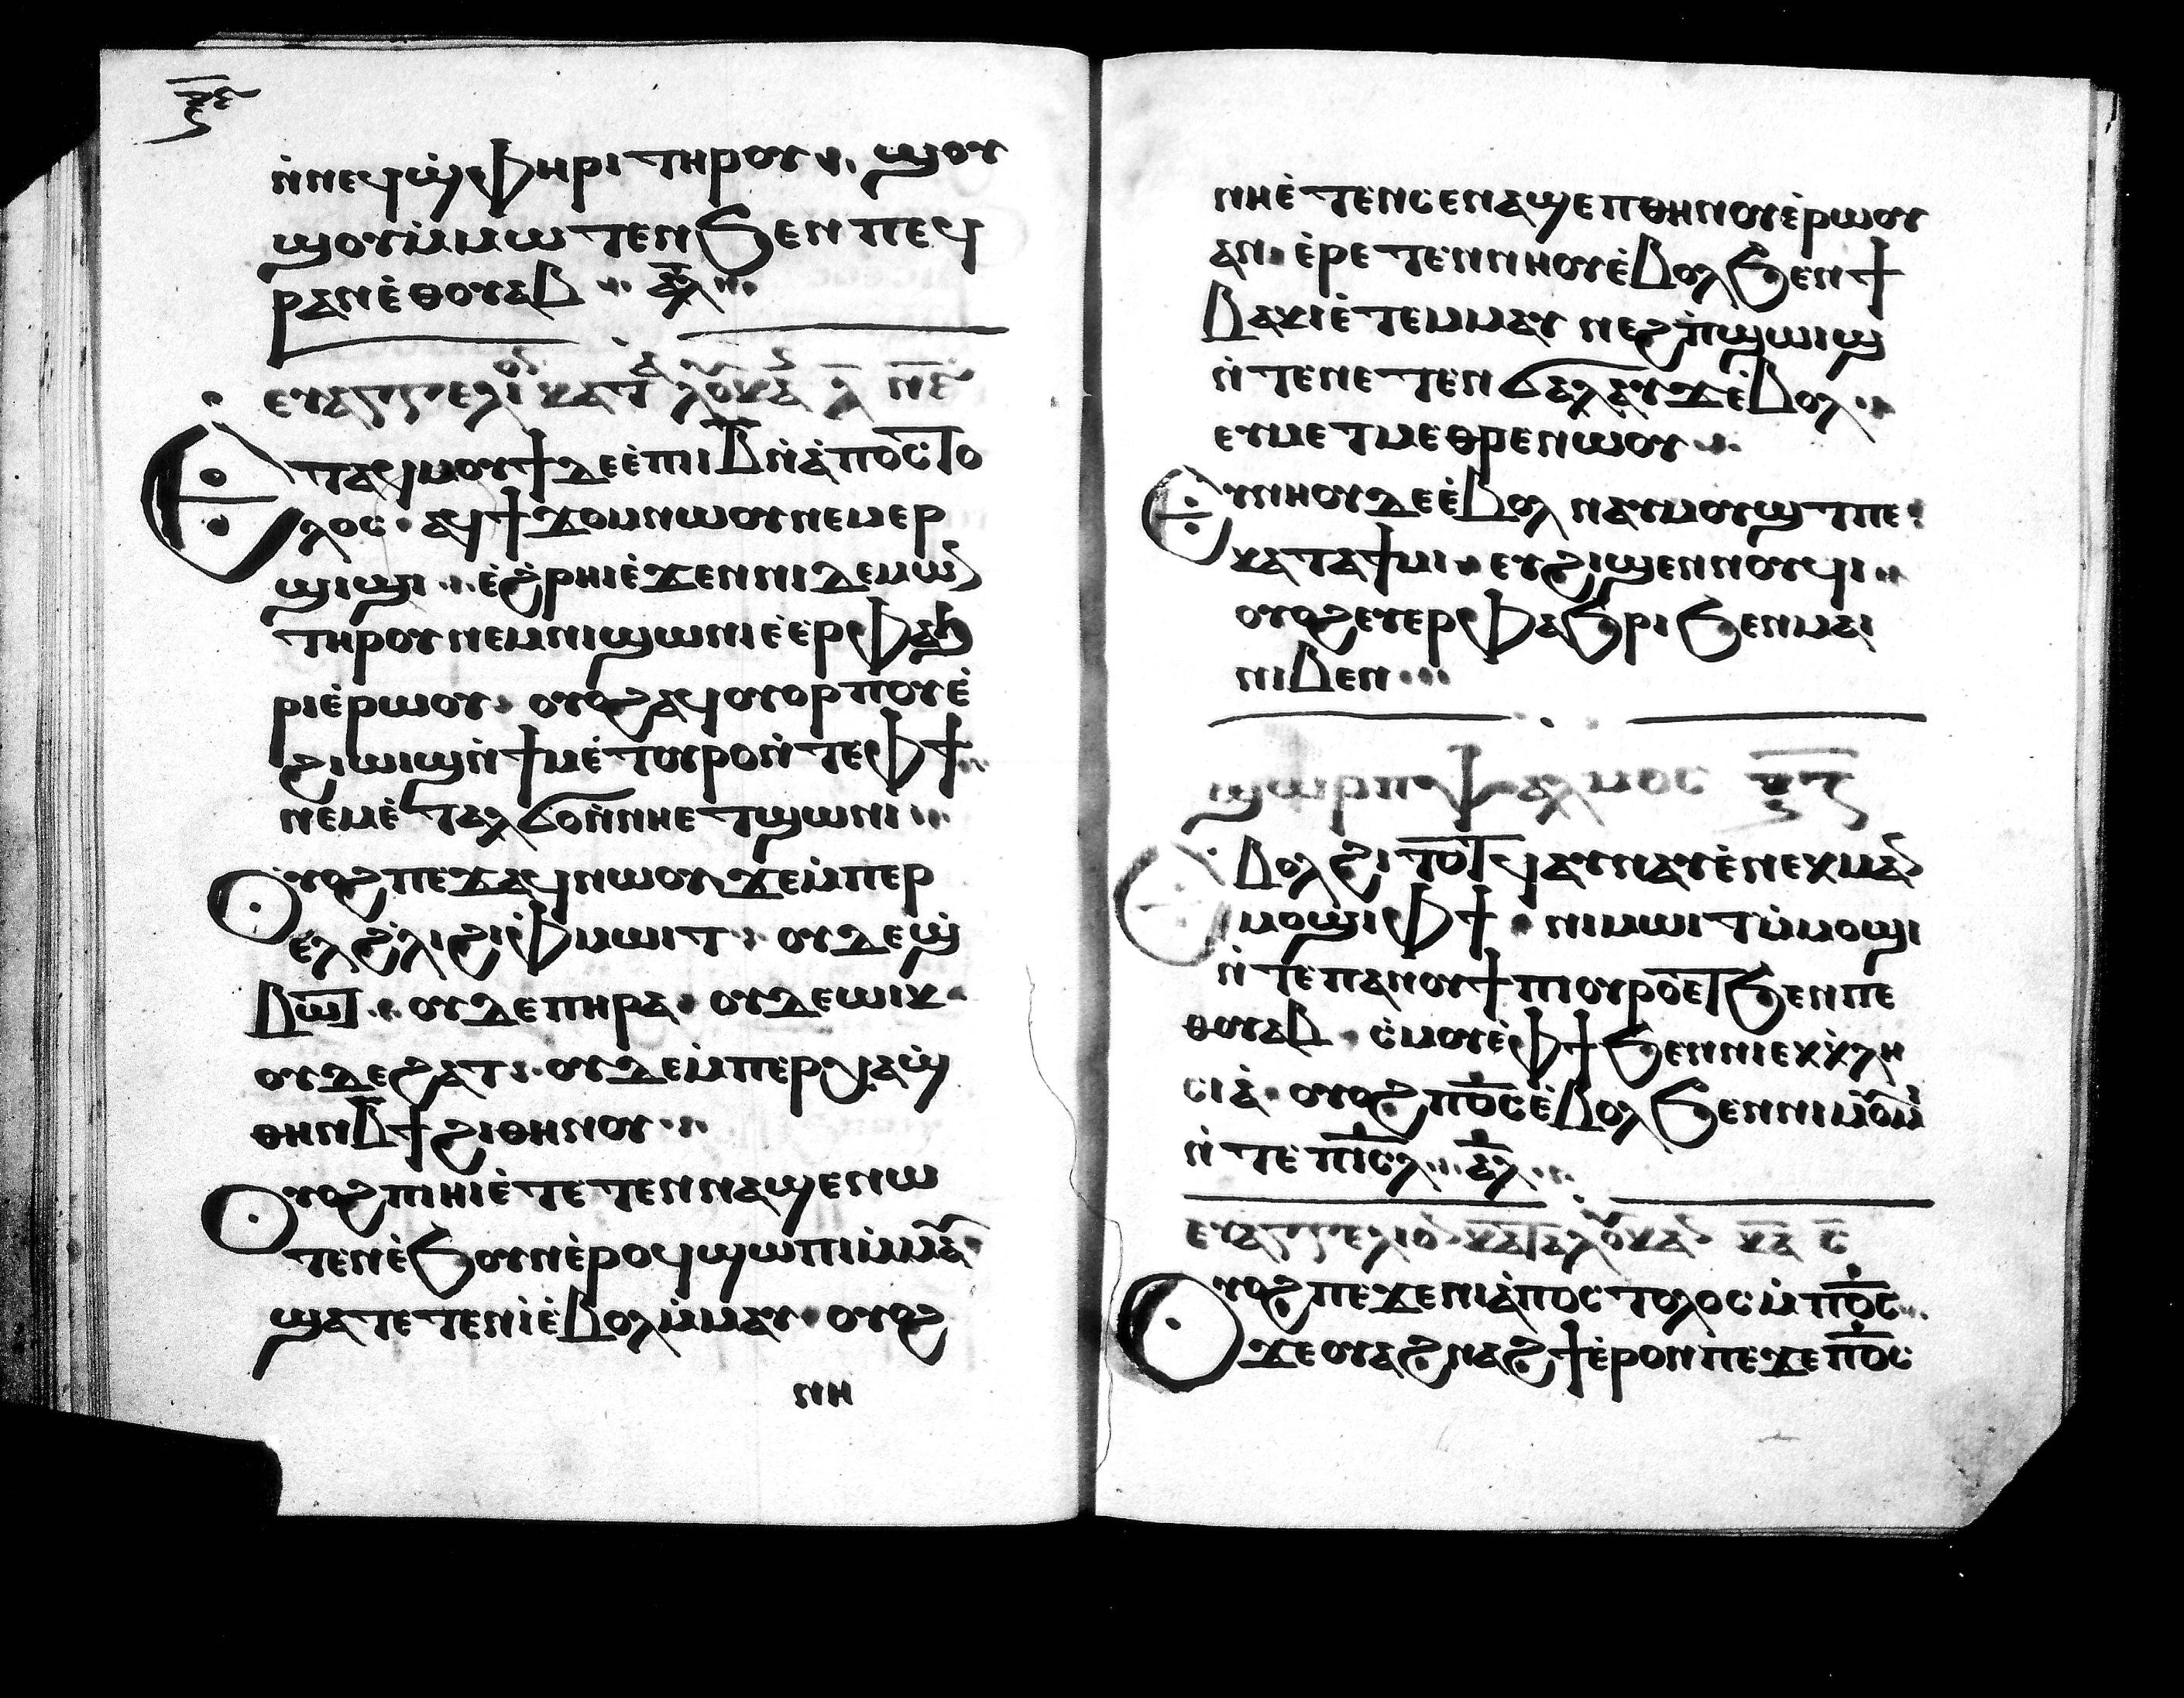 ⲛ̀ⲛⲉϥϣ̀ⲫⲏⲣⲓ ⲧⲏⲣⲟⲩ ϣⲟⲩ
ϣⲟⲩ ⲙ̀ⲙⲱⲧⲉⲛ ϧⲉⲛ ⲡⲉϥ
ⲣⲁⲛ ⲉ̀ⲑⲟⲩⲁⲃ ⲁ̅ⲗ̅
ⲉⲩⲁⲅⲅⲉⲗⲓ ⲕⲁⲧ ⲗⲟⲩⲕⲁ
Ⲉⲧⲁϥⲙⲟⲩϯ ⲇⲉ ⲉ̀ⲡⲓⲓ̅ⲃ̅ ⲛ̀ⲁ̀ⲡⲟⲥⲧⲟ
ⲗⲟⲥ· ⲁϥϯϫⲟⲙ ⲛⲱⲟⲩ ⲛⲉⲙ ⲉⲣ
ϣⲓϣⲓ ⲉ̀ϩ̀ⲣⲏⲓ ⲉ̀ϫⲉⲛ ⲛⲓⲇⲉⲙⲱⲛ
ⲧⲏⲣⲟⲩ ⲛⲉⲙ ⲛⲓϣⲱⲛⲓ ⲉ̀ⲉⲣⲫⲁϧ
ⲣⲓ ⲉ̀ⲣⲱⲟⲩ· ⲟⲩⲟϩ ⲁϥⲟⲩⲟⲣⲡⲟⲩ ⲉ̀
ϩⲓⲱⲓϣ ⲛ̀ϯⲙⲉⲧⲟⲩⲣⲟ ⲛ̀ⲧⲉ ⲫϯ
ⲛⲉⲙ ⲉ̀ⲧⲁⲗϭⲟ ⲛ̀ⲛⲏ ⲉⲧϣⲱⲛⲓ
Ⲟⲩⲟϩ ⲡⲉϫⲁϥ ⲛⲱⲟⲩ ϫⲉ ⲙ̀ⲡⲉⲣ
ⲉⲗ ϩ̀ⲗⲓ ϩⲓ ⲫ̀ⲙⲱⲓⲧ ⲟⲩⲇⲉ ϣ̀
ⲃⲱⲧ ⲟⲩⲇⲉ ⲡⲏⲣⲁ· ⲟⲩⲇⲉ ⲱⲓⲕ·
ⲟⲩⲇⲉ ϩⲁⲧ ⲟⲩⲇⲉ ⲙ̀ⲡⲉⲣⲭⲁ ϣ̀
ⲑⲏⲛ ⲃ̅ϯ ϩⲓ ⲑⲏⲛⲟⲩ
Ⲟⲩⲟϩ ⲡⲓⲏⲓ ⲉ̀ⲧⲉⲧⲉⲛⲛⲁϣⲉⲛⲱ
ⲧⲉⲛ ⲉ̀ϧⲟⲩⲛ ⲉ̀ⲣⲟϥ ϣⲱⲡⲓ ⲙ̀ⲙⲁⲩ
ϣⲁⲧⲉⲧⲉⲛⲓ̀ ⲉ̀ⲃⲟⲗ ⲙ̀ⲙⲁⲩ· ⲟⲩⲟϩ
ⲛⲏ
ⲛⲏ ⲉ̀ⲧⲉⲛⲥⲉⲛⲁϣⲉⲡ ⲑⲏⲛⲟⲩ ⲉ̀ⲣⲱⲟⲩ
ⲁⲛ· ⲉ̀ⲣⲉⲧⲉⲛⲛⲏⲟⲩ ⲉ̀ⲃⲟⲗ ϧⲉⲛ ϯ
ⲃⲁⲕⲓ ⲉ̀ⲧⲉⲙⲙⲁⲩ ⲛⲉϩ ⲡ̀ϣⲱⲓϣ
ⲛ̀ⲧⲉ ⲛⲉⲧⲉⲛϭⲁⲗⲁⲩϫ ⲉ̀ⲃⲟⲗ
ⲉⲩⲙⲉⲧⲙⲉⲑⲣⲉ ⲛⲱⲟⲩ
Ⲉⲩⲛⲏⲟⲩ ⲇⲉ ⲉ̀ⲃⲟⲗ ⲛⲁⲩⲙⲟϣⲧ ⲡⲉ
ⲕⲁⲧⲁ ϯⲙⲓ ⲉⲩϩⲓϣⲉⲛⲛⲟⲩϥⲓ
ⲟⲩⲟϩ ⲉⲩⲉⲣⲫⲁϧⲣⲓ ϧⲉⲛ ⲙⲁⲓ
ⲛⲓⲃⲉⲛ
ϣⲱⲣⲡ ⲯⲁⲗⲙⲟⲥ
Ⲉⲃⲟⲗϩⲓⲧⲟⲧϥ ⲁⲩⲛⲁⲩ ⲉ̀ⲛⲉⲕⲙⲁⲛ
ⲙⲟϣⲓ ⲫϯ· ⲛⲓⲙⲱⲓⲧ ⲙ̀ⲙⲟϣⲓ
ⲛ̀ⲧⲉ ⲡⲁⲛⲟⲩϯ ⲡⲓⲟⲩⲣⲟ ⲉⲧ ϧⲉⲛ ⲡⲉ
ⲑⲟⲩⲁⲃ· ⲥ̀ⲙⲟⲩ ⲉ̀ⲫϯ ϧⲉⲛ ⲛⲓⲉⲕⲕ̀ⲗⲏ
ⲥⲓⲁ̀· ⲟⲩⲟϩ ⲡ̅ⲟ̅ⲥ̅ ⲉ̀ⲃⲟⲗ ϧⲉⲛ ⲛⲓⲙⲟⲩⲙⲓ
ⲛ̀ⲧⲉ ⲡ̅ⲓ̅ⲥ̅ⲗ̅ ⲁ̅ⲗ̅
ⲉⲩⲁⲅⲅⲉⲗⲓⲟⲛ ⲕⲁⲧⲁ ⲗⲟⲩⲕⲁⲛ
Ⲟⲩⲟϩ ⲡⲉϫⲉ ⲛⲓⲁ̀ⲡⲟⲥⲧⲟⲗⲟⲥ ⲙ̀ⲡ̅ⲟ̅ⲥ̅
ϫⲉ ⲟⲩⲁϩ ⲛⲁϩϯ ⲉ̀ⲣⲟⲛ ⲡⲉϫⲉ ⲡ̅ⲟ̅ⲥ̅